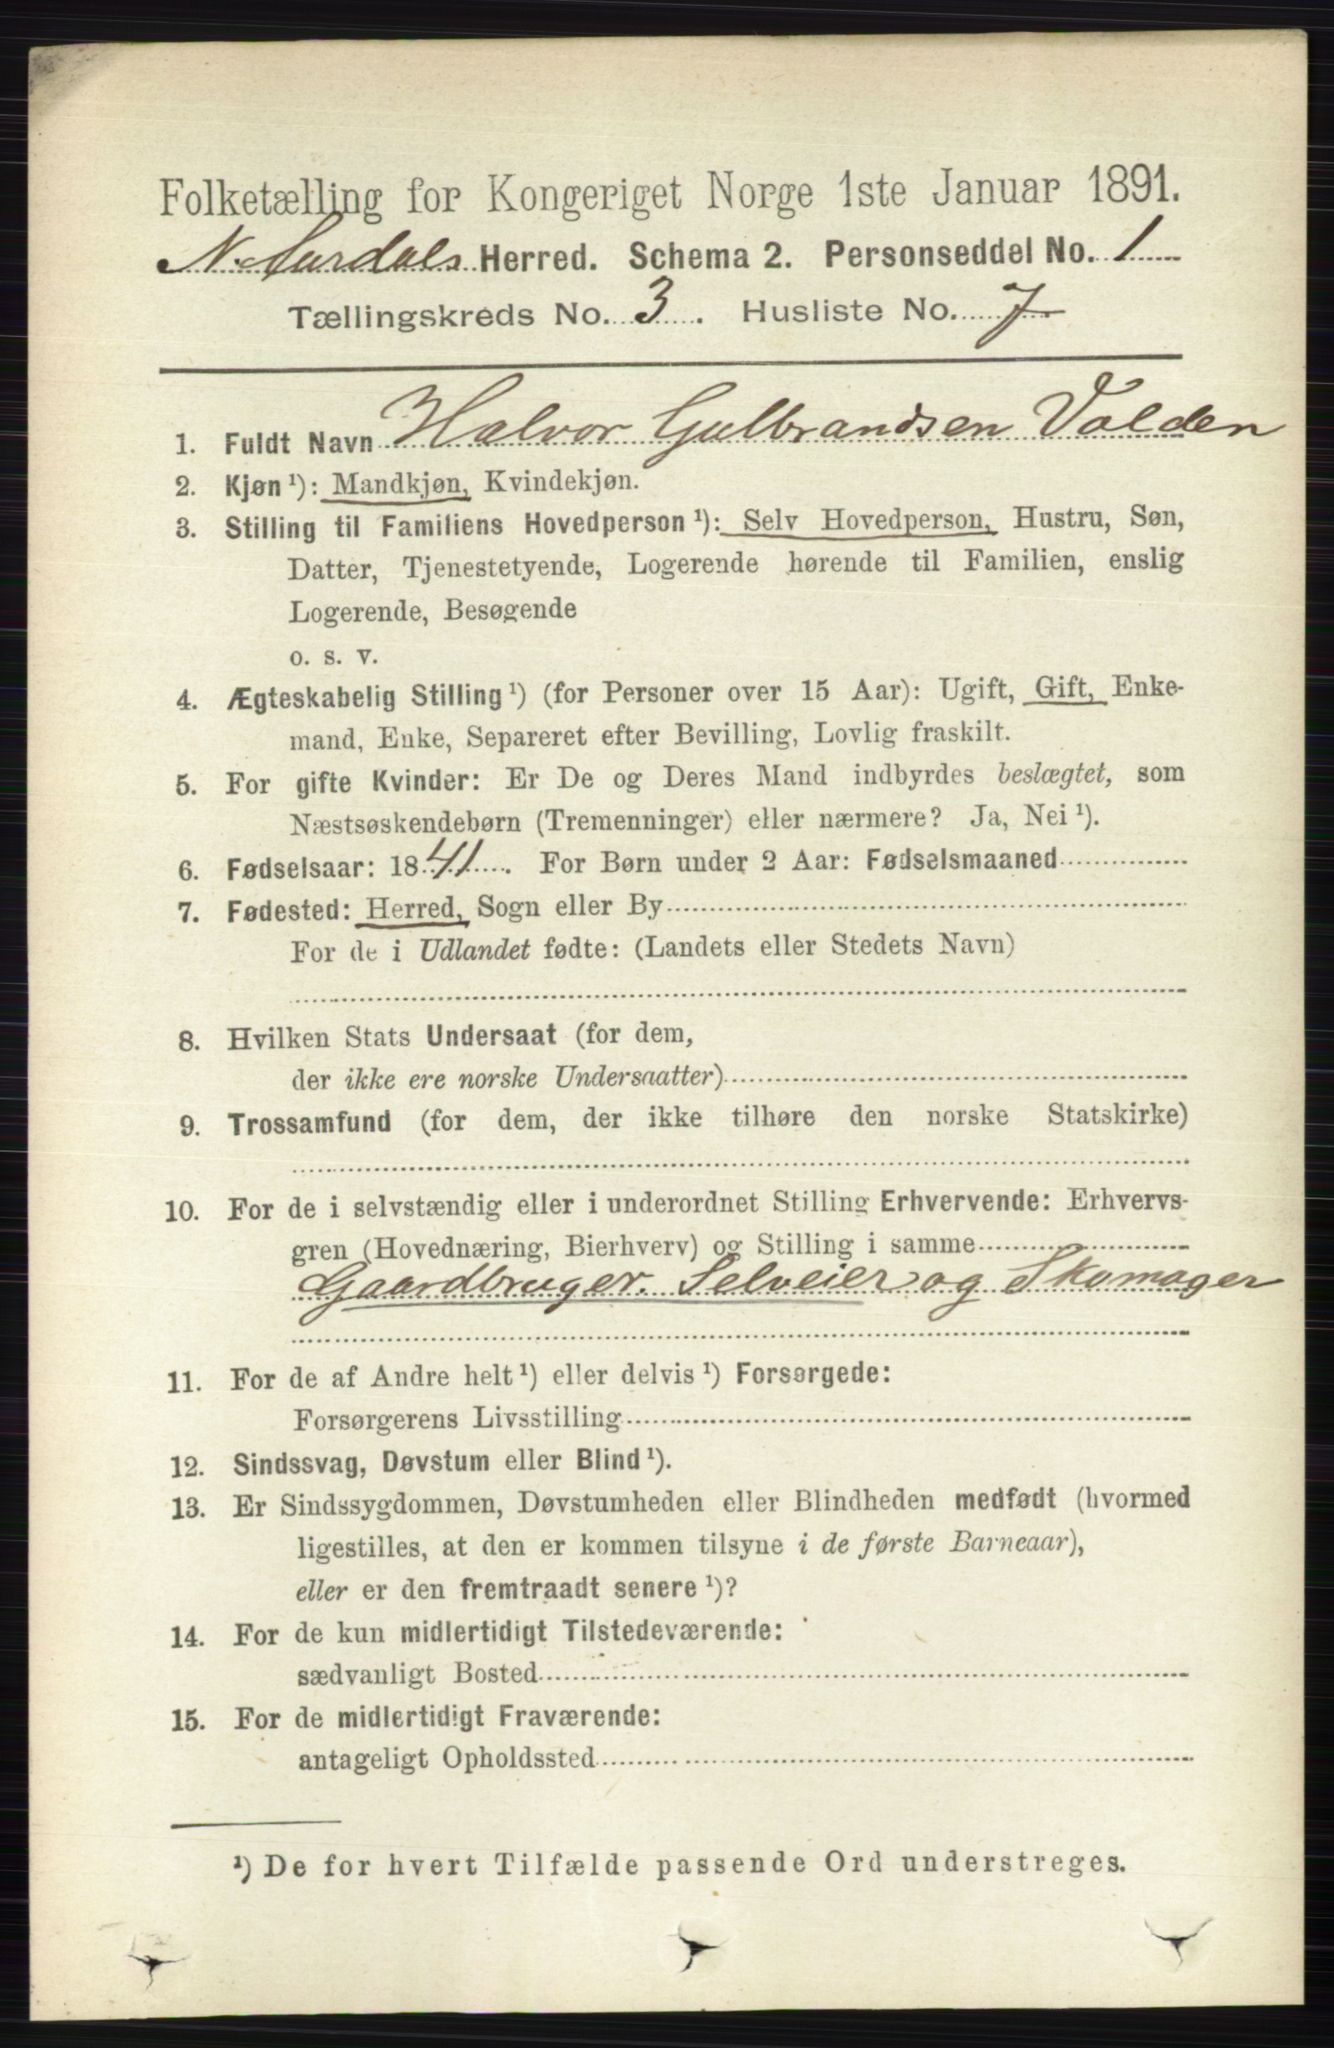 Folketælling for Kongeriget Norge 1ste Januar 1891.
N. Aurdals Herred. Schema 2. Personseddel No. 1
Tællingskreds No. 3. Husliste No. 7
1. Fuldt Navn Halvor Gulbrandsen Valden
2. Kjøn ¹): Mandkjøn, Kvindekjøn.
3. Stilling til Familiens Hovedperson ¹): Selv Hovedperson, Hustru, Søn,
Datter, Tjenestetyende, Logerende hørende til Familien, enslig
Logerende, Besøgende
o. s. v.
4. Ægteskabelig Stilling ¹) (for Personer over 15 Aar): Ugift, Gift, Enke-
mand, Enke, Separeret efter Bevilling, Lovlig fraskilt.
5. For gifte Kvinder: Er De og Deres Mand indbyrdes beslægtet, som
Næstsøskendebørn (Tremenninger) eller nærmere? Ja, Nei ¹).
6. Fødselsaar: 1841. For Børn under 2 Aar: Fødselsmaaned
7. Fødested: Herred, Sogn eller By
For de i Udlandet fødte: (Landets eller Stedets Navn)
8. Hvilken Stats Undersaat (for dem,
der ikke ere norske Undersaatter)
9. Trossamfund (for dem, der ikke tilhøre den norske Statskirke)
10. For de i selvstændig eller i underordnet Stilling Erhvervende: Erhvervs-
gren (Hovednæring, Bierhverv) og Stilling i samme
Gaardbruger. Selveier og Skomager
11. For de af Andre helt ¹) eller delvis ¹) Forsørgede:
Forsørgerens Livsstilling
12. Sindssvag, Døvstum eller Blind ¹).
13. Er Sindssygdommen, Døvstumheden eller Blindheden medfødt (hvormed
ligestilles, at den er kommen tilsyne i de første Barneaar),
eller er den fremtraadt senere ¹)?
14. For de kun midlertidigt Tilstedeværende:
sædvanligt Bosted
15. For de midlertidigt Fraværende:
antageligt Opholdssted
¹) De for hvert Tilfælde passende Ord understreges.